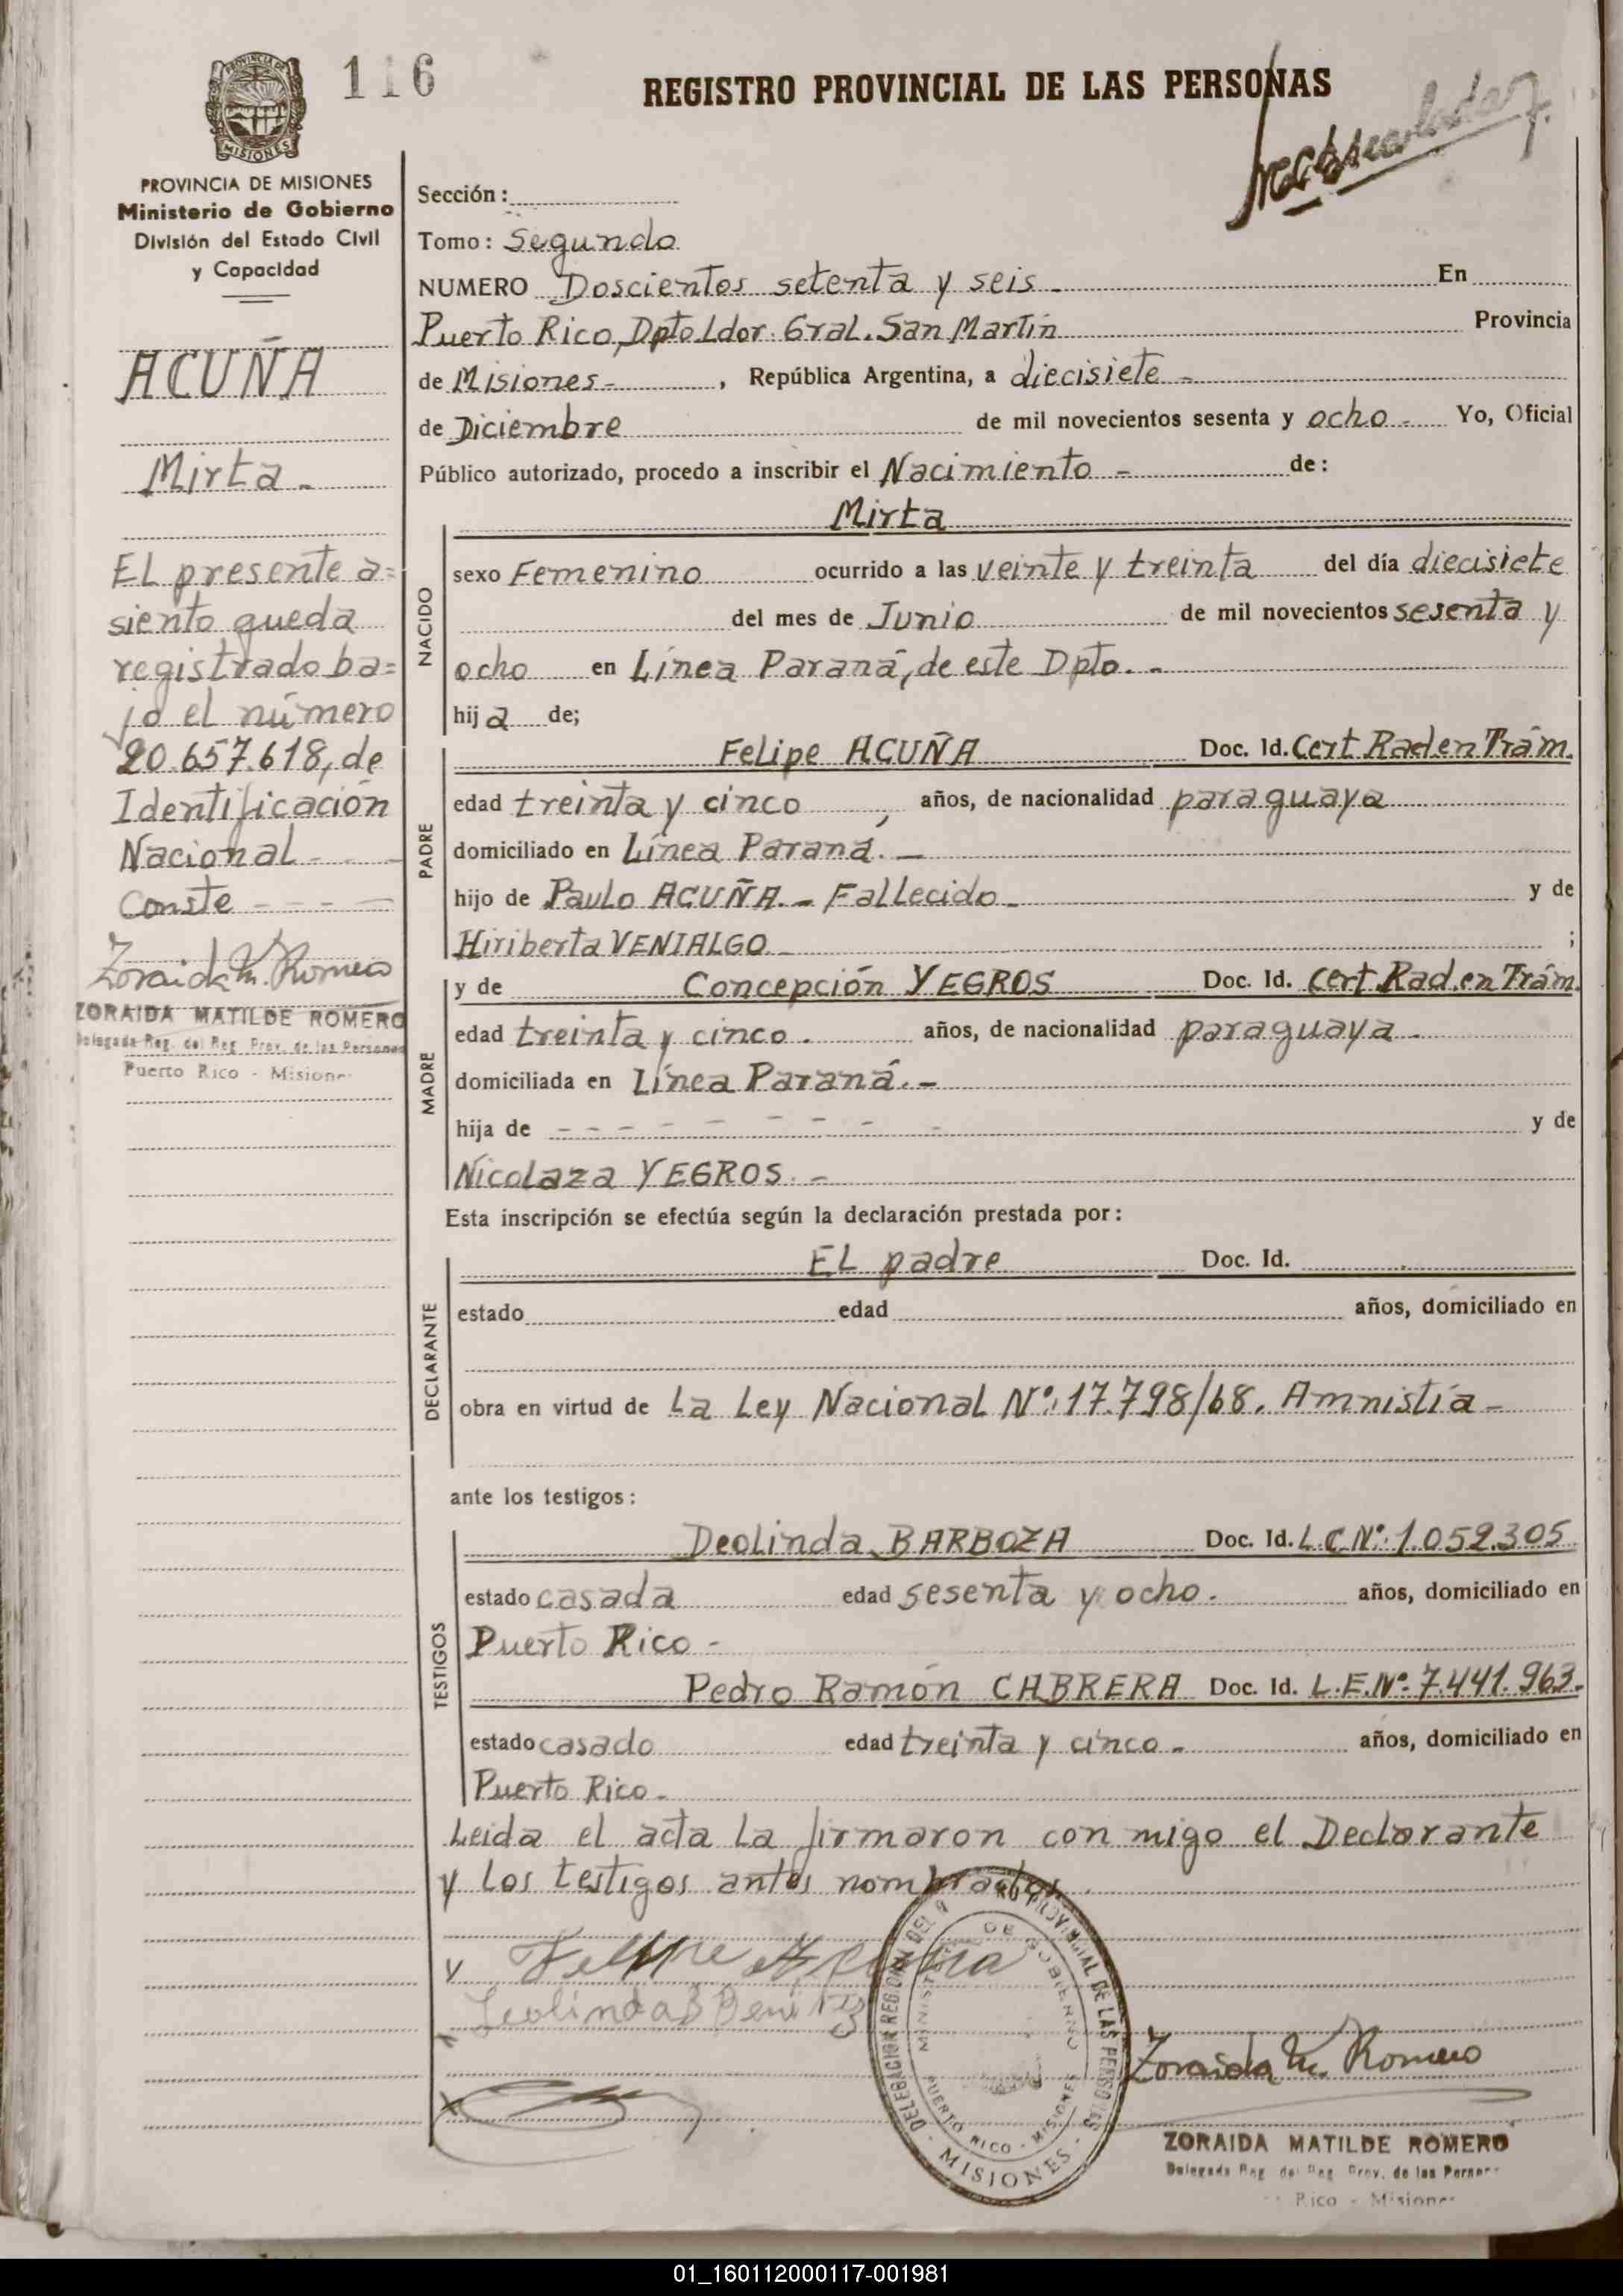 116
REGISTRO PROVINCIAL DE LAS PERSONAS
PROVINCIA DE MISIONES
Ministerio de Gobierno
División del Estado Civil
y Capacidad
ACUÑA
Mirta.-
El presente a=
siento queda
registrado ba=
jo el número
20.657.618, de
Identificación
Nacional - - -
Conste - - - -
Zoraida M. Romero
ZORAIDA MATILDE ROMERO
Delegada Reg. del Reg. Prov. de las Personas
Puerto Rico - Misiones
Sección:
Tomo: Segundo
NUMERO Doscientos setenta y seis.- En
Puerto Rico, Dpto Ldor. Gral. San Martín Provincia
de Misiones.- , República Argentina, a diecisiete -
de Diciembre de mil novecientos sesenta y ocho.- Yo, Oficial
Público autorizado, procedo a inscribir el Nacimiento - de:
Mirta
NACIDO
sexo Femenino ocurrido a las veinte y treinta del día diecisiete
del mes de Junio de mil novecientos sesenta y
ocho en Línea Paraná, de este Dpto. -
hija de;
PADRE
Felipe ACUÑA Doc. Id. Cert Rad en Trám.
edad treinta y cinco , años, de nacionalidad paraguaya
domiciliado en Línea Paraná. -
hijo de Paulo ACUÑA. - Fallecido - y de
Hiriberta VENIALGO - ;
MADRE
y de Concepción YEGROS Doc. Id. Cert. Rad. en Trám.
edad treinta y cinco. años, de nacionalidad paraguaya -
domiciliada en Línea Paraná. -
hija de - - - - - - - - - y de
Nicolaza YEGROS. -
Esta inscripción se efectúa según la declaración prestada por:
DECLARANTE
El padre Doc. Id.
estado edad años, domiciliado en
obra en virtud de La Ley Nacional Nº: 17.798/68. Amnistía -
ante los testigos:
TESTIGOS
Deolinda BARBOZA Doc. Id. L.C.Nº: 1.052.305
estado casada edad sesenta y ocho. años, domiciliado en
Puerto Rico -
Pedro Ramón CABRERA Doc. Id. L.E.Nº: 7.441.963.
estado casado edad treinta y cinco - años, domiciliado en
Puerto Rico -
Leida el acta la firmaron con migo el Declarante
y los testigos antes nombrados.
Felipe Acuña
DELEGACION REGIONAL DEL PROVINCIAL DE LAS PERSONAS
MINISTERIO DE GOBIERNO
PUERTO RICO - MISIONES
- MISIONES -
Zoraida M. Romero
ZORAIDA MATILDE ROMERO
Delegada Reg. del Reg. Prov. de las Personas
Rico - Misiones
01_160112000117-001981